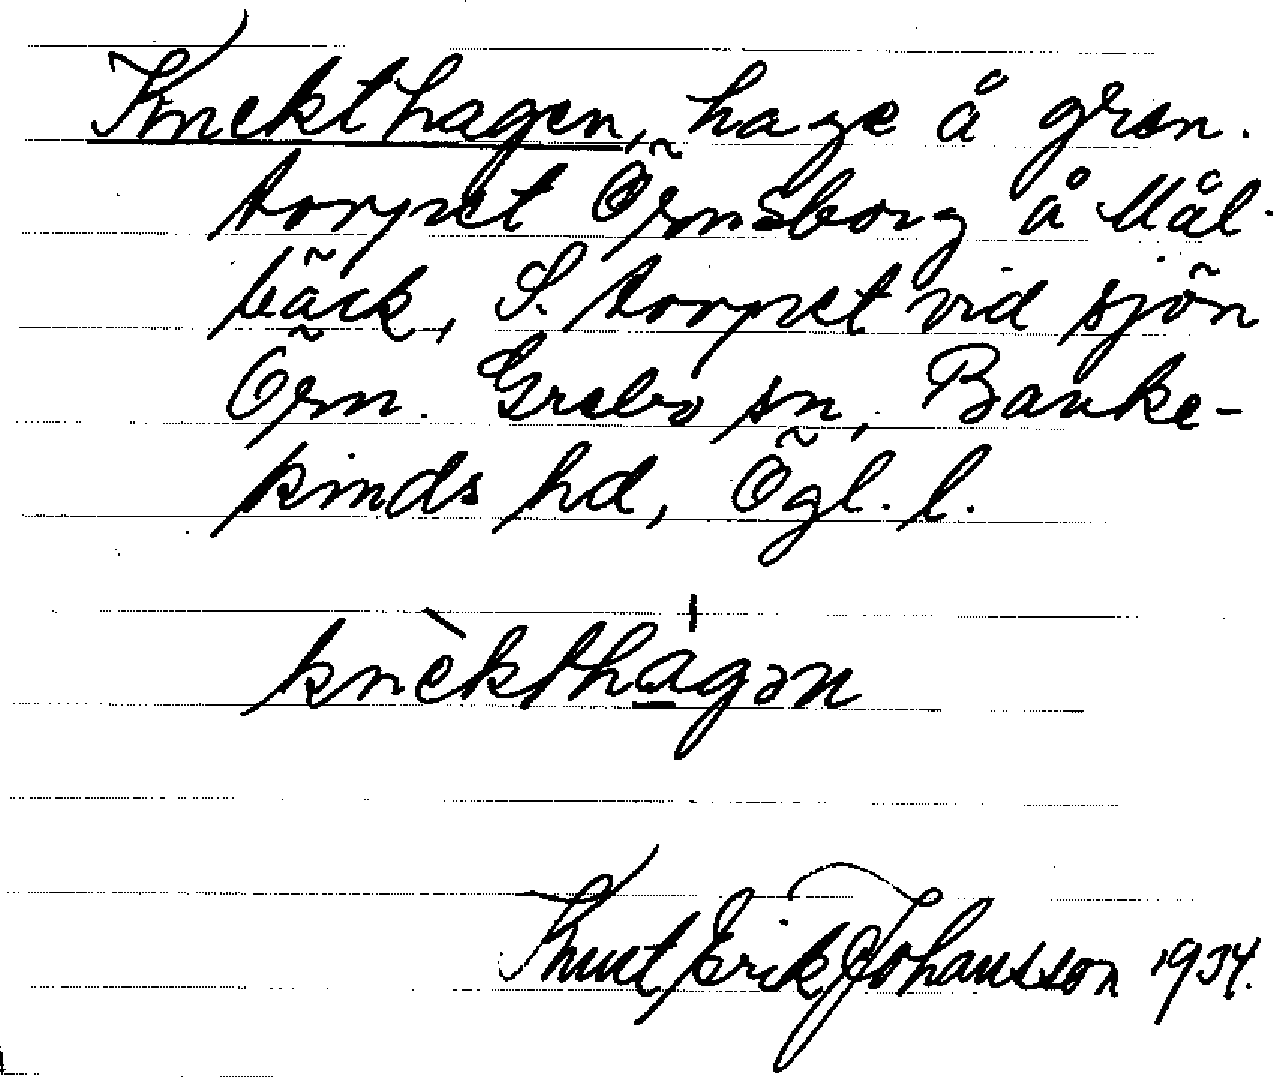 Knekthagen, hage å gren.
torpet Örnsborg å Mål-
bäck, S. torpet vid sjön
Örn. Grebo sn, Banke-
kinds hd, Ögl. l.
knèkthagən
Knut Erik Johansson 1934.